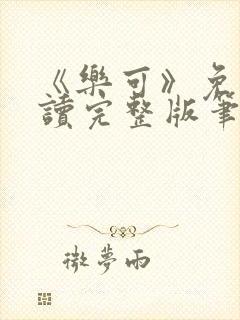 《樂可》免
讀完整版筆
微夢雨